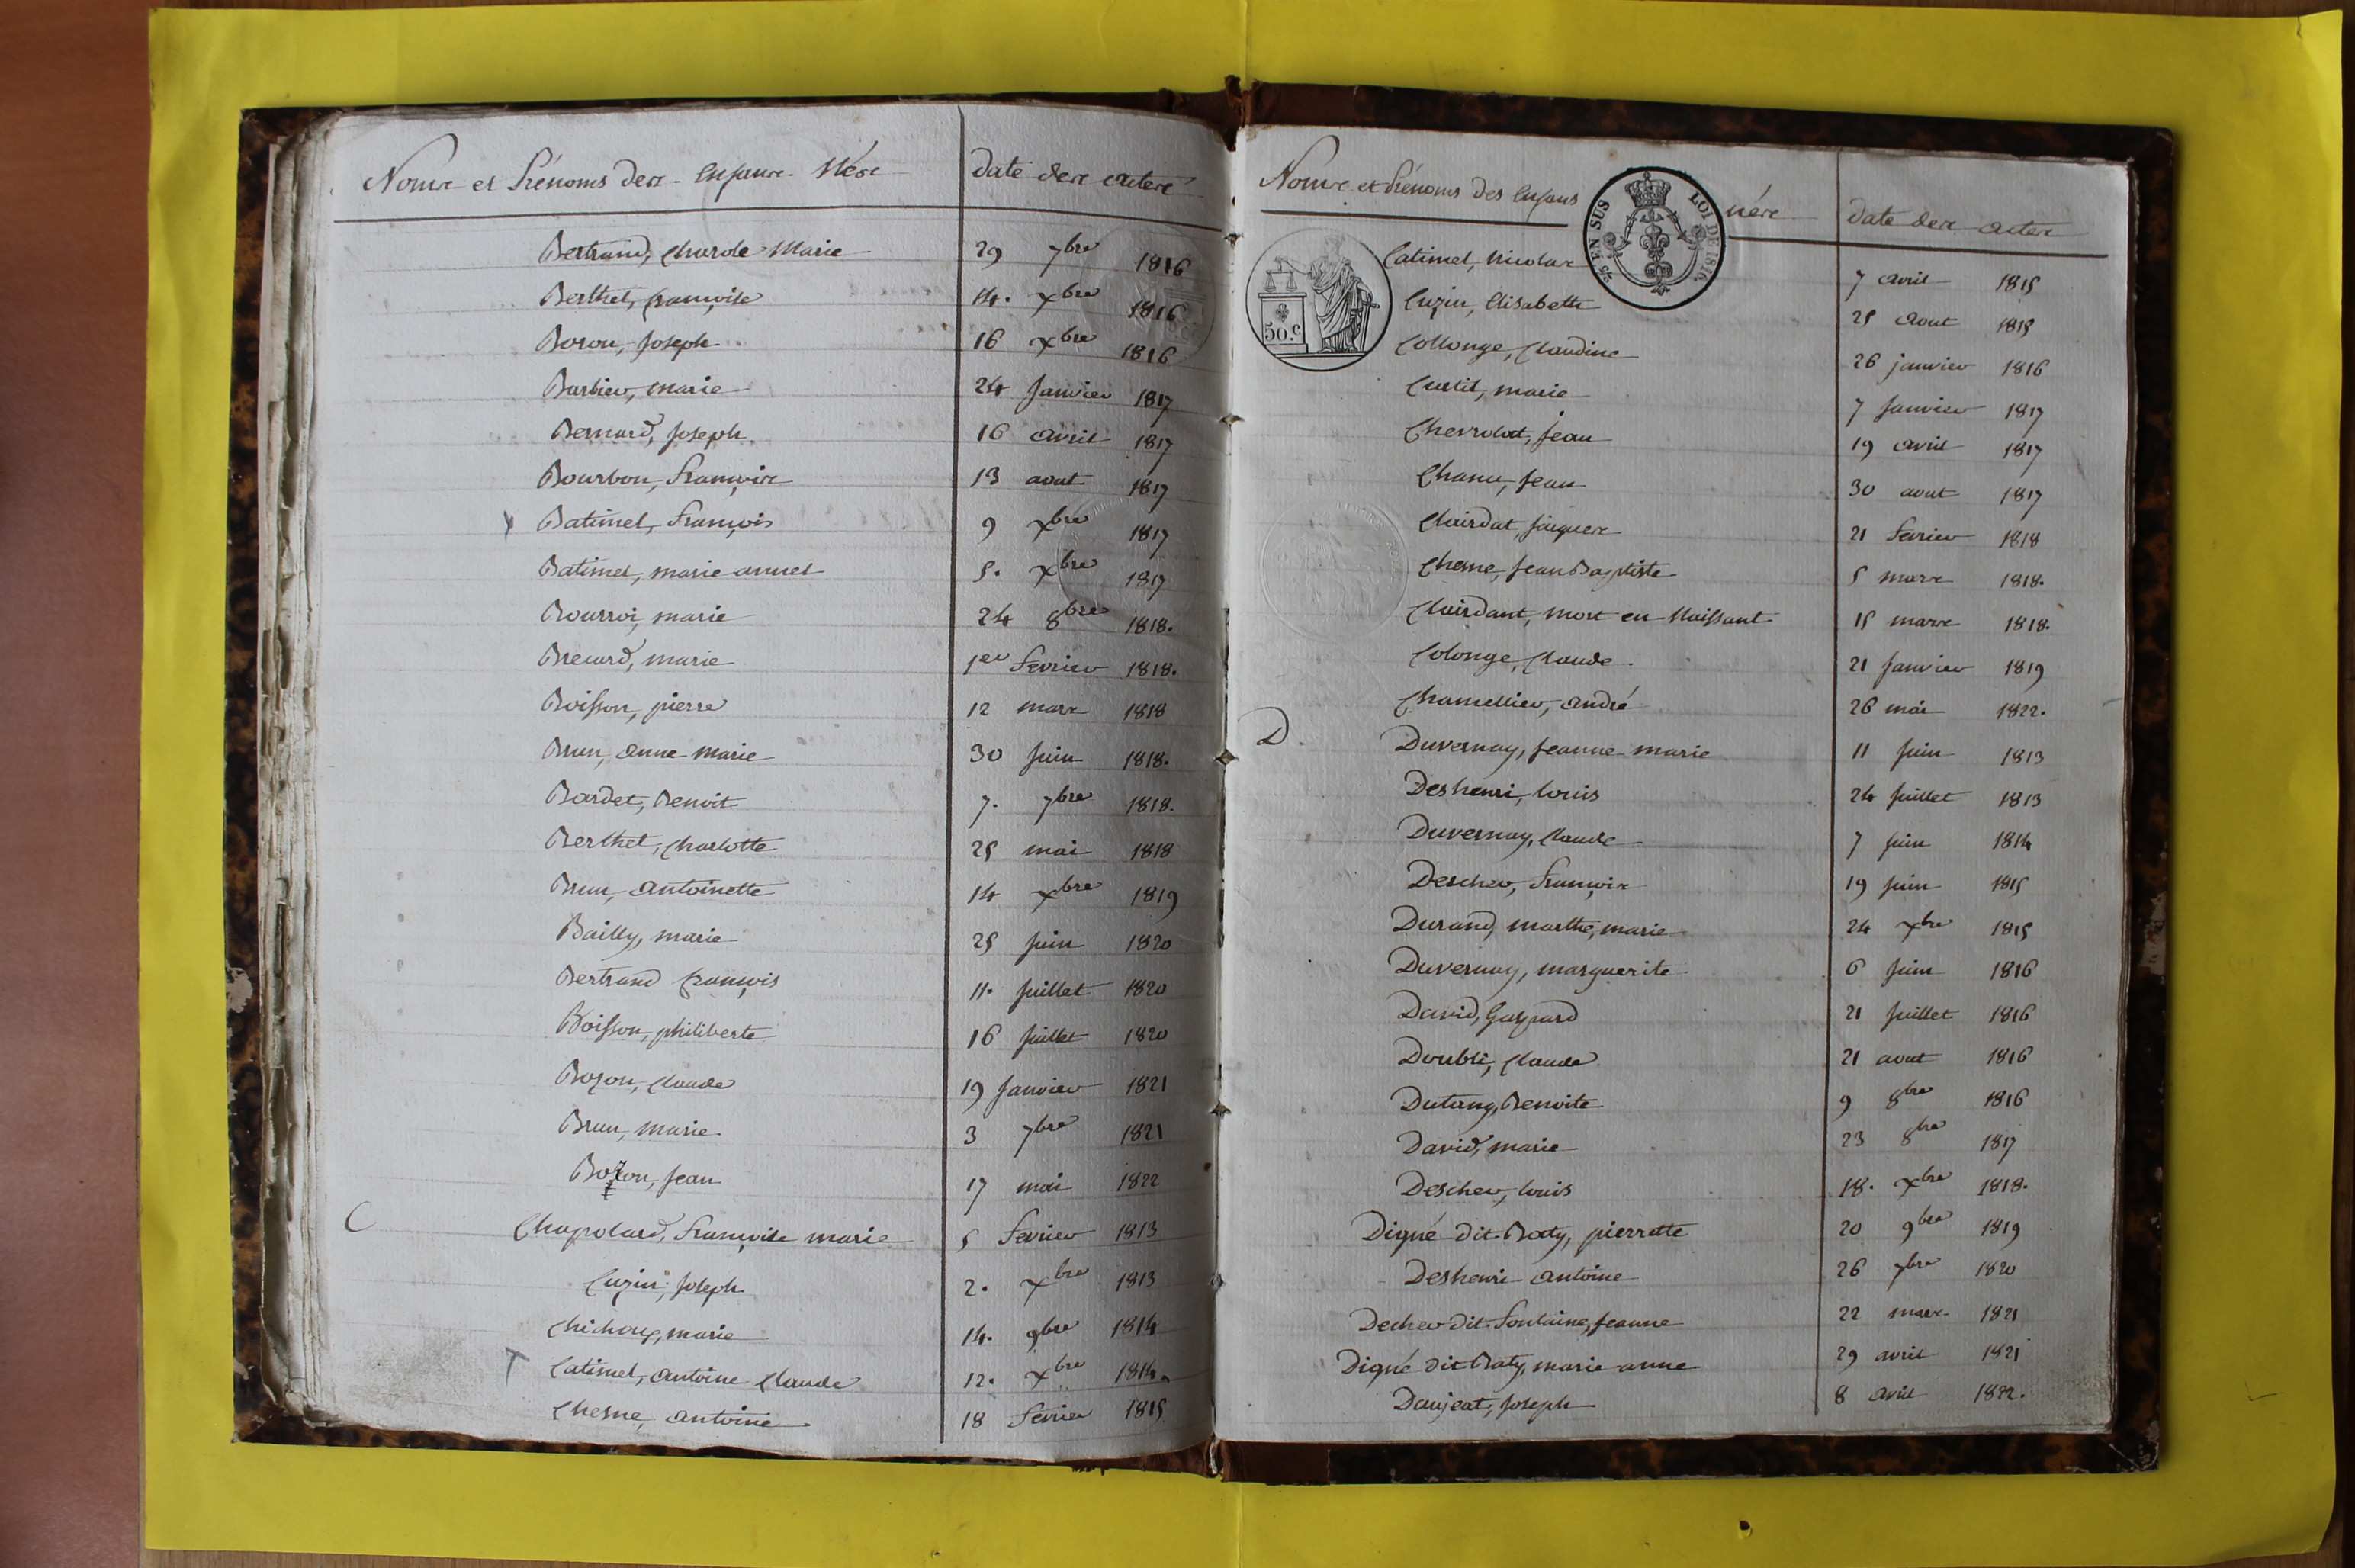 Noms et Prénoms des Enfans Nés Date des actes
Bertrand, Charle Marie 29 7bre 1816
Berthet, françoise 14. xbre 1816
Boron, Joseph 16 xbre 1816
Barbier, marie 24 Janvier 1817
Bernard, Joseph 16 avril 1817
Bourbon, François 13 aout 1817
Batimel, François 9 xbre 1817
Batimel, marie anne 5. xbre 1817
Bourroi, marie 24 8bre 1818.
Brecard, marie 1er fevrier 1818.
Boisson, pierre 12 mars 1818
Brun, anne marie 30 Juin 1818.
Bardet, Benoit 7. 7bre 1818.
Berthet, Charlotte 25 mai 1818
Brun, antoinette 14 xbre 1819
Bailly, marie 25 Juin 1820
Bertrand françois 11. Juillet 1820
Boisson, philiberte 16 Juillet 1820
Bozon, Claude 19 Janvier 1821
Brun, marie 3 7bre 1821
Bozon, Jean 17 mai 1822
C Chapolard, Françoise marie 5 fevrier 1813
Cuzin, Joseph 2. xbre 1813
Chichoux, marie 14. 9bre 1814
Catimel, antoine Claude 12. xbre 1814.
Chesne, antoine 18 fevrier 1815
Noms et Prénoms des Enfans nés Date des actes
EN SUS LOI DE 1816
50.c
Catimel, Nicolas 7 avril 1815
Cuzin, Elisabeth 25 Aout 1815
Collonge, Claudine 26 janvier 1816
Curtil, marie 7 Janvier 1817
Chevrolat, Jean 19 avril 1817
Chanu, Jean 30 aout 1817
Clairdat, Jaques 21 fevrier 1818
Chesne, Jean Baptiste 5 mars 1818.
Clairdant, mort en Naissant 15 mars 1818.
Colonge, Claude. 21 Janvier 1819
Chamellier, andré 26 mai 1822.
D. Duvernay, Jeanne marie 11 Juin 1813
Deshenri, louis 24 Juillet 1813
Duvernay, Claude 7 Juin 1814
Descher, François 19 Juin 1815
Durand, marthe, marie 24 xbre 1815
Duvernay, marguerite 6 Juin 1816
David, Gaspard 21 Juillet 1816
Doublé, Claude 21 aout 1816
Dutang, Benoite 9 8bre 1816
David, marie 23 8bre 1817
Descher, louis 18. xbre 1818.
Digné dit Baty, pierrette 20 9bre 1819
Deshenri antoine 26 7bre 1820
Decher dit fontaine, Jeanne 22 mars 1821
Digné dit Baty, marie anne 29 avril 1821
Daujeat, Joseph 8 avril 1822.